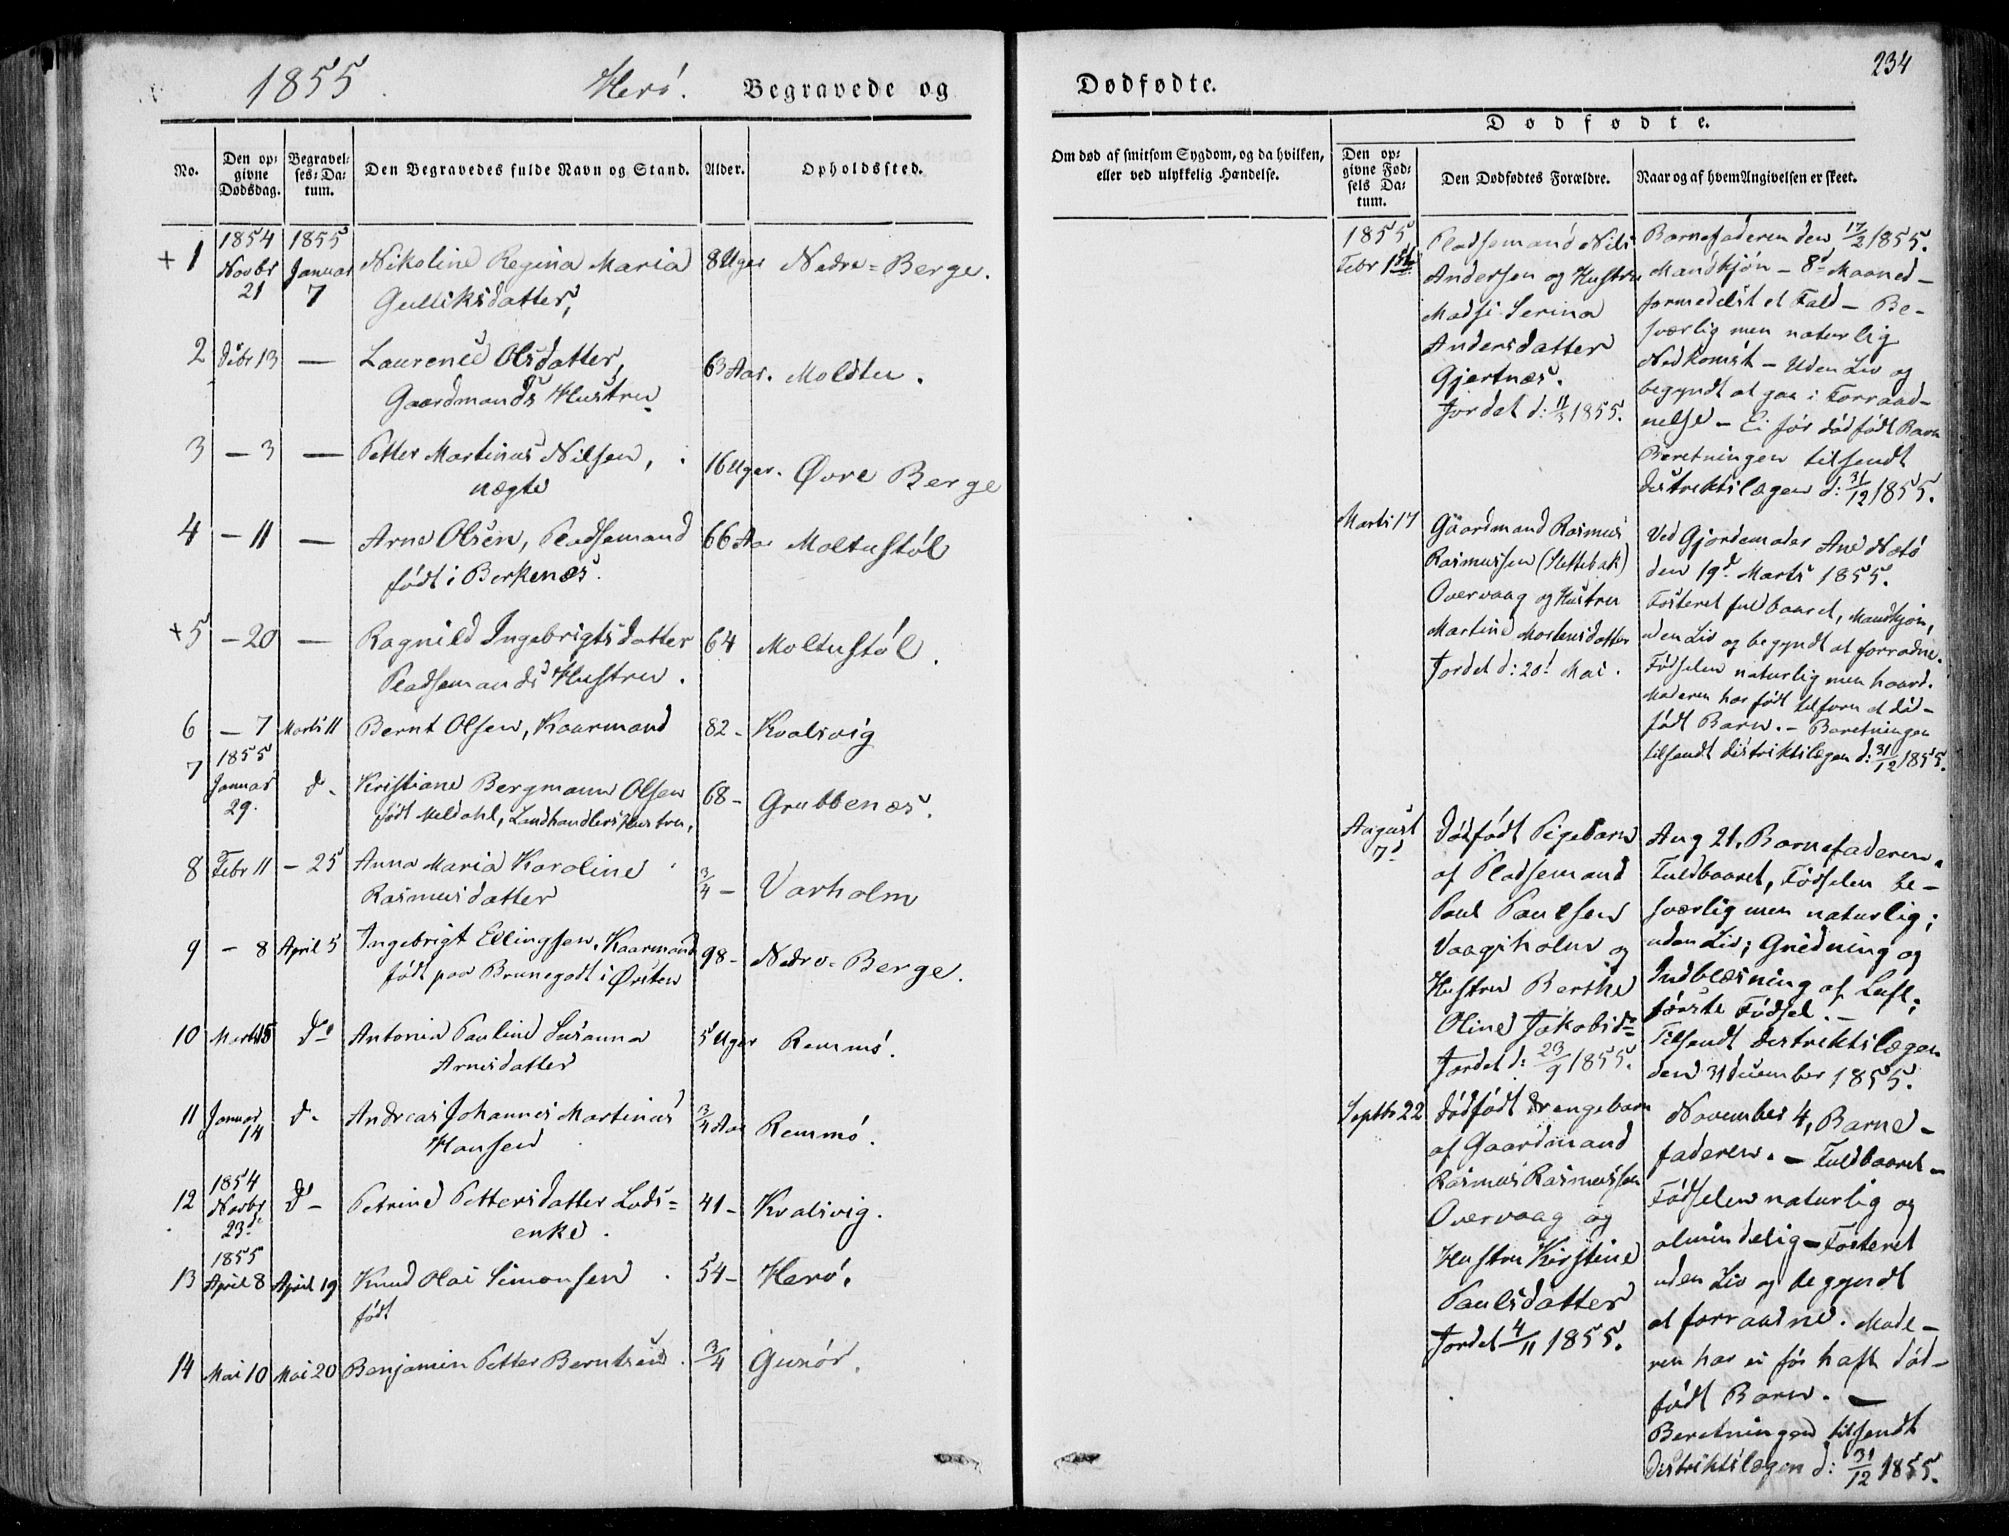 1855. Herö. Begravede og
No.
Den op-
givne
Dødsdag.
Begravel-
ses-Da-
tum.
Den Begravedes fulde Navn og Stand.
Alder.
Opholdssted.
+ 1 1854 Novbr 21 1855 Januar 7 Nikoline Regina Maria 8 Uger Nedre-Berge.
Gulliksdatter,
2 Dcbr 13 — Laurense Olsdatter, 63 Aar. Moldtu.
Gaardmands Hustru
3 — 3 — Petter Martinus Nilsen, 16 Uger. Øvre Berge
uægte
4 — 11 — Arne Olsen, Pladsemand 66 Aar Moltustøl
født i Berkenæs.
+ 5 — 20 — Ragnild Ingebrigtsdatter 64 Moltustøl.
Pladsemands Hustru.
6 — 7 Marts 11 Bernt Olsen, Kaarmand 82 - Kvalsvig
7 1855 Januar 29. d. Kristiane Bergmann Olsen 68 - Grubbenæs.
født Meldahl, Landhandlers Hustru,
8 Febr 11 — 25 Anna Maria Karoline 3/4 — Varholm
Rasmusdatter
9 — 8 April 5 Ingebrigt Ellingsen, Kaarmand 98 - Nedre-Berge.
født paa Brunegodt i Ørsten
10 Marts 15 Do Antonia Pauline Susanna 5 Uger Remmö.
Arnesdatter
11 Januar 14 d. Andreas Johannes Martinus 3/4 Aar Remmö.
Hansen
12 1854 Novbr 23de D - Petrine Pettersdatter Lods= 41 - Kvalsvig.
enke.
13 1855 April 8 April 19 Knud Olai Simonsen 54 - Herö.
født
14 Mai 10 Mai 20 Benjamin Petter Berntsen 3/4 Gurør.
234
Dødfødte.
Om død af smitsom Sygdom, og da hvilken,
eller ved ulykkelig Hændelse.
Dødfødte.
Den op-
givne Fød-
sels Da-
tum.
Den Dødfødtes Forældre.
Naar og af hvem Angivelsen er skeet.
1855
Febr 15de
Pladsemand Nils
Andersen og Hustru
Madsi Serina
Andersdatter
Gjertnæs.
Jordet d: 11/3 1855.
Barnefaderen den 17/2 1855.
Mandkjön - 8d Maaned -
formedelst et Fald - Be-
sværlig men naturlig
Nedkomst - Uden Liv og
begyndt at gaa i Forraad-
nelse - Ei før dødfødt Barn
Beretningen tilsendt
Distriktslægen d: 31/12 1855.
Marts 17
Gaardmand Rasmus
Rasmussen (Slettebak)
Overvaag og Hustru
Martine Mortensdatter
Jordet d: 20d Mai.
Ved Gjordemoder Ane Notö
den 19d Marts 1855.
Fosteret fuldbaaret, Mandkjön,
uden Liv og begyndt at forradne.
Födselen naturlig men haard.
Moderen har födt tilforn et död-
födt Barn. - Beretningen
tilsendt Distriktslægen d: 31/12 1855.
August
7d
Dødfødt Pigebarn
af Pladsemand
Paul Paulsen
Vaagsholm og
Hustru Berthe
Oline Jakobsdr
Jordet d: 23/9 1855.
Aug 21. Barnefaderen.
Fuldbaaret, Födselen be-
sværlig men naturlig;
uden Liv; Gnidning og
Indblæsning af Luft;
förste Födsel. -
Tilsendt Distriktslægen
den 31 December 1855.
Septbr 22
Dødfødt Drengebarn
af Gaardmand
Rasmus Rasmussen
Overvaag og
Hustru Kirstine
Paulsdatter
Jordet 4/11 1855.
November 4, Barne-
faderen. - Fuldbaaret -
Födselen naturlig og
almindelig - Fosteret
uden Liv og begyndt
at forraadne. Mode-
ren har ei för haft död-
födt Barn. —
Beretningen tilsendt
Distriktslægen d: 31/12 1855.